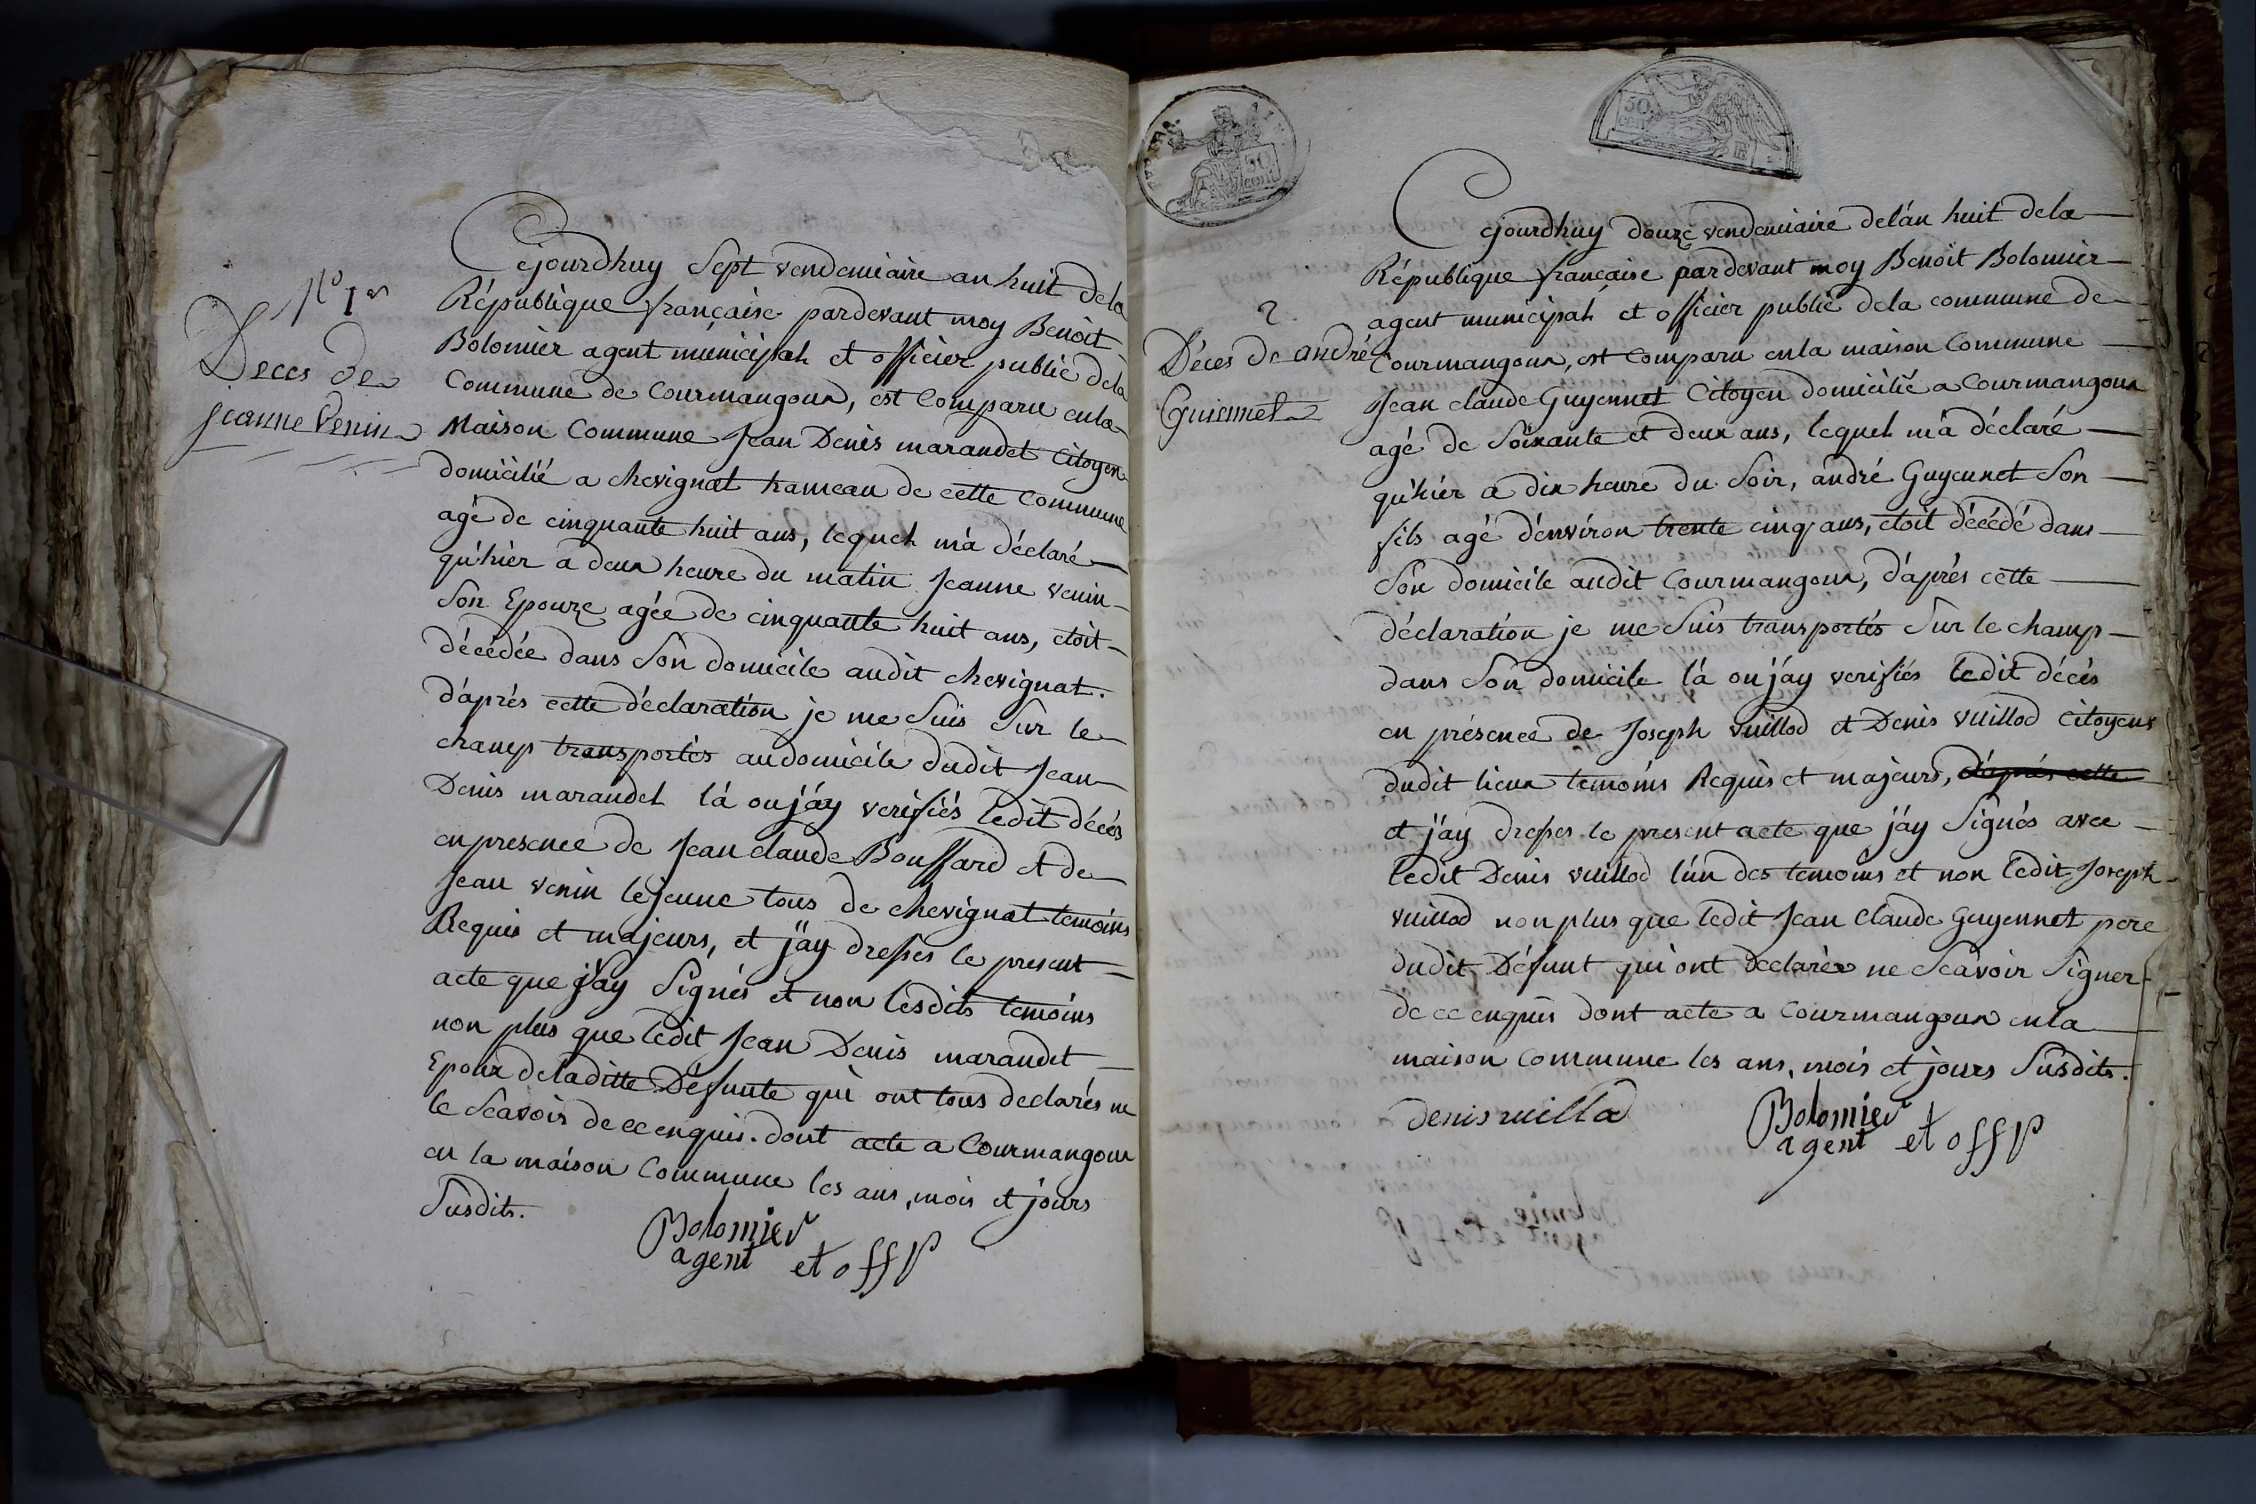 No 1er
Deces de
jeanne Venin
Cejourdhuy Sept vendemiaire an huit dela
République française pardevant moy Benoit
Bolomier agent municipal et officier public dela
Commune de Courmangoux, est Comparu en la
Maison Commune Jean Denis marandet Citoyen
domicilié a chevignat hameau de cette Commune
agé de cinquante huit ans, lequel m'a déclaré
qu'hier a deux heure du matin Jeanne venin
Son Epouze agée de cinquante huit ans, étoit
décédée dans Son domicile audit chevignat.
d'aprés cette déclaration je me Suis Sur le
champ transportés au domicile dudit Jean
Denis marandet lá ou j'áy verifiés ledit décés
en presence de Jean claude Bouffard et de
Jean venin le jeune tous de chevignat temoins
Requis et majeurs, et j'ay dresses le present
acte que j'ay Signés et non lesdits temoins
non plus que ledit Jean Denis marandet
Epoux deladitte Défunte qui ont tous declarés ne
le Scavoir de ce enquis. dont acte a Courmangoux
en la maison Commune les ans, mois et jours
Susdits.
Bolomier
agent et off p
50
cent
30
2.
Déces de andré
Guiennet
Cejourdhuy douze vendemiaire del'an huit dela
République française pardevant moy Benoit Bolomier
agent municipal et officier public dela commune de
Courmangoux, est Comparu en la maison Commune
Jean claude Guyennet Citoyen domicilié a Courmangoux
agé de Soixante et deux ans, lequel m'a déclaré
qu'hier a dix heure du Soir, andré Guyennet Son
fils agé d'environ trente cinq ans, étoit décédé dans
Son domicile audit Courmangoux, d'aprés cette
déclaration je me Suis transportés Sur le champ
dans Son domicile lá ou j'áy verifiés ledit décés
en présence de Joseph vuillod et Denis vuillod Citoyens
dudit lieux temoins Requis et majeurs, d'aprés cette
et j'ay dresses le present acte que j'ay Signés avec
ledit Denis vuillod l'un des temoins et non ledit Joseph
vuillod non plus que ledit Jean Claude Guyennet pere
dudit Défunt qui ont Declarés ne Scavoir Signer
de ce enquis dont acte a Courmangoux en la
maison Commune les ans, mois et jours Susdits.
denis vuilla
Bolomier
agent et off p